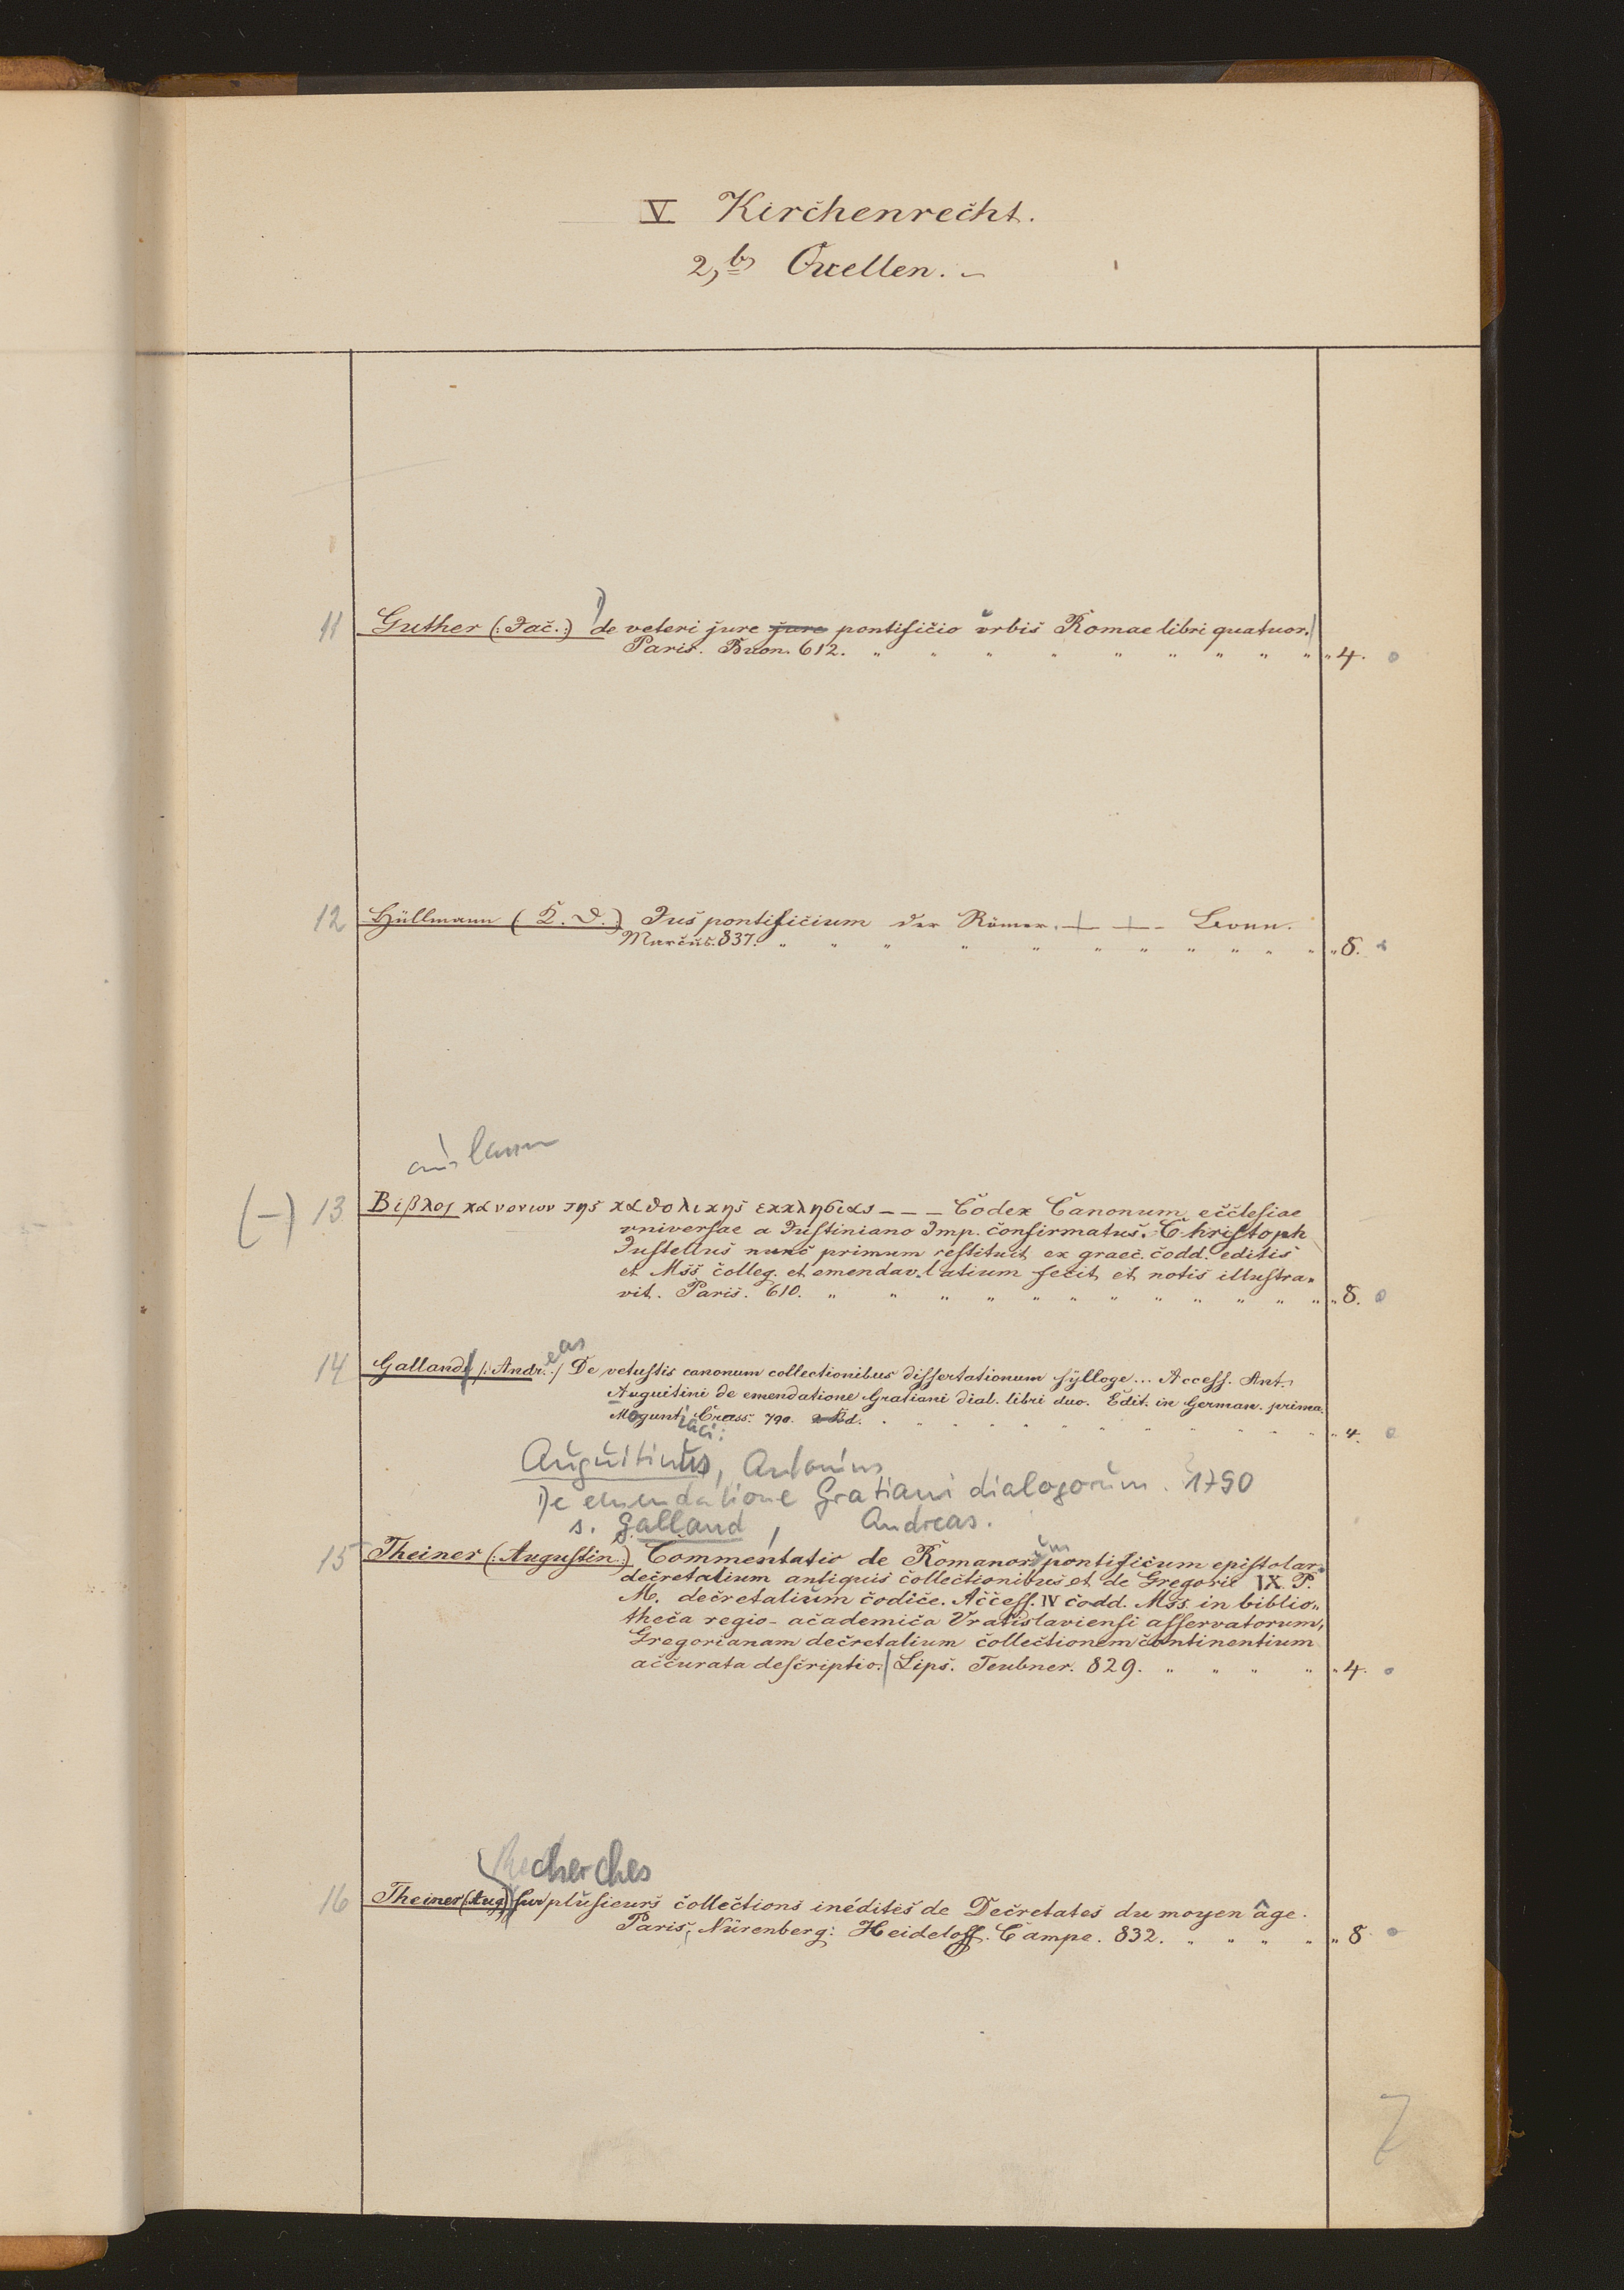 V Kirchenrecht.
2, b, Quellen. –
11 Guther (: Jac. :) de veteri jure jure pontificio urbis Romae libri quatuor.
Paris. Buon. 612. " " " " " " " " " " 4.
12 Hüllmann ( K. D. :) Jus pontificium der Römer. Bonn.
Marcus. 837. " " " " " " " " " " " " 8.
(–) 13 Βιβλος κανονων της καθολικης εκκλησιας – – – Codex Canonum ecclesiae
universae a Justiniano Imp. confirmatus. Christoph
Justellus nunc primum restituit ex graec. codd. editis
et Mss colleg. et emendav. latium fecit et notis illustra„
vit. Paris. 610. " " " " " " " " " " " " " 8.
14 Gallandi /: Andreas :/ De vetustis canonum collectionibus dissertationum sylloge... Access. Ant.
Auguitini de emendatione Gratiani dial. libri duo. Edit. in German. prima.
Moguntiaci: Crass: 790. 2 Bd. " " " " " " " " " " 4.
Auguitinus, Antonius
De emendatione Gratiani dialogorum. 1790
s. Galland, Andreas.
15 Theiner (: Augustin :) Commentatio de Romanorum pontificum epistolar.
decretalium antiquis collectionibus et de Gregorii IX. P.
M. decretalium codice. Access. IV codd. Mss. in biblio„
theca regio-academica Vratislaviensi asservatorum,
Gregorianam decretalium collectionem continentium
accurata descriptio. Lips. Teubner. 829. " " " " " 4.
Recherches
16 Theiner (: Aug :) sur plusieurs collections inédites de Decretates du moyen âge.
Paris, Nürenberg: Heideloff. Campe. 832. " " " " " 8
7